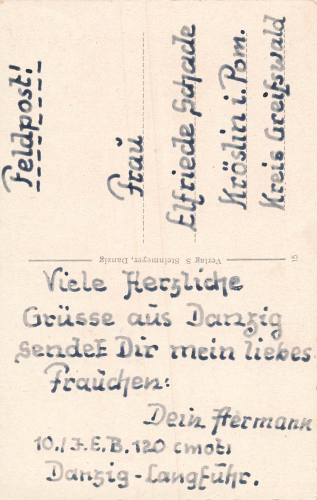 Feldpost!
Frau
Elfriede Schade
Kröslin i. Pom.
Kreis Greifswald
Verlag S. Steinmeyer, Danzig
Viele Herzliche
Grüsse aus Danzig
sendet Dir mein liebes
Frauchen:
Dein Hermann
10./J.E.B. 120 (mot)
Danzig-Langfuhr.